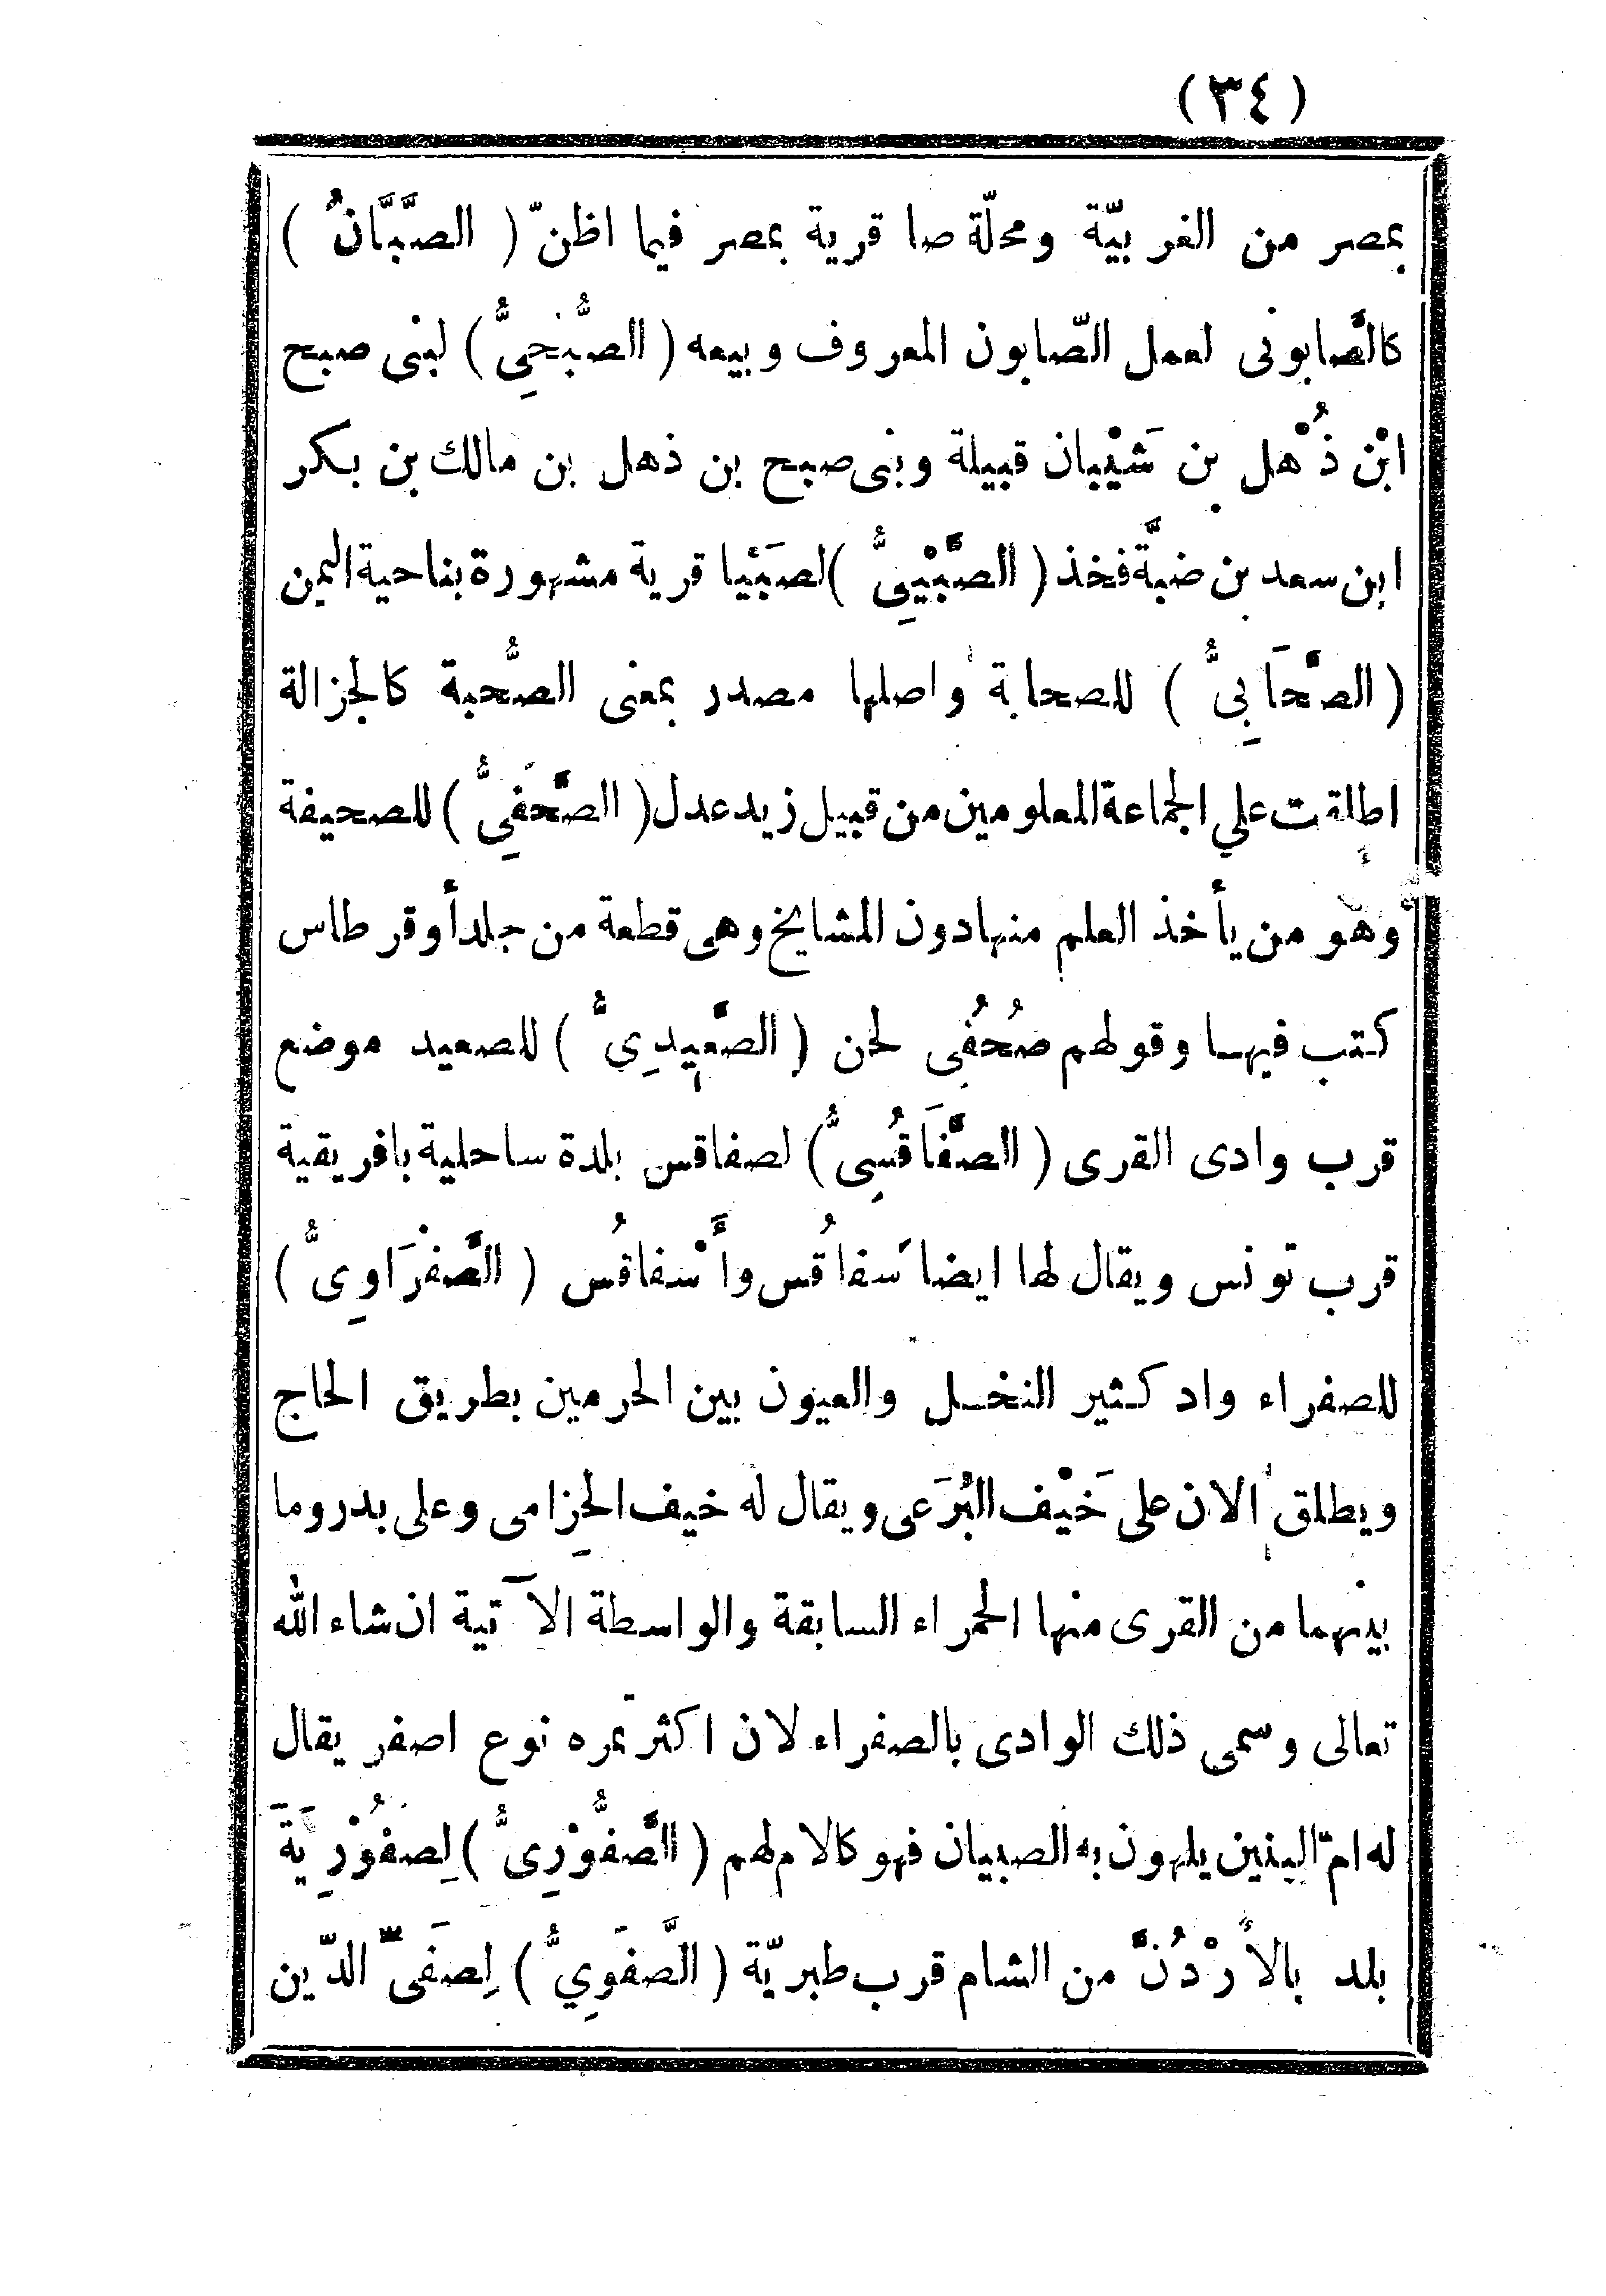 (٣٤)
بمصر من الغربيّة ومحلّة صا قرية بمصر فيما اظنّ ( الصَّبَّانُ )
كالصَّابونى لعمل الصّابون المعروف وبيعه ( الصُّبْحِىُّ ) لبنى صبح
ابْن ذُهْل بن شَيْبان قبيلة وبنى صبح بن ذهل بن مالك بن بكر
ابن سعد بن ضبَّة فخذ ( الصَّبْيِىُّ ) لصَبْيا قرية مشهورة بناحية اليمن
( الصَّحَابِىُّ ) للصحابة واصلها مصدر بمعنى الصُّحبة كالجزالة
اطلقت على الجماعة المعلومين من قبيل زيد عدل ( الصَّحَفِىُّ ) للصحيفة
وَهُو من يأخذ العلم منها دون المشايخ وهى قطعة من جلد أو قرطاس
كتب فيها وقولهم صُحُفى لحن ( الصَّعِيدِىُّ ) للصعيد موضع
قرب وادى القرى ( الصَّفَاقُسِىُّ ) لصفاقس بلدة ساحلية بافريقية
قرب تونس ويقال لها ايضا سَفاقُس وأَسْفاقُس ( الصَّفْرَاوِىُّ )
للصفراء واد كثير النخل والعيون بين الحرمين بطريق الحاج
ويطلق الان على خَيْف البُرَعى ويقال له خيف الحِزامى وعلى بدر وما
بينهما من القرى منها الحمراء السابقة والواسطة الآتية ان شاء الله
تعالى وسمى ذلك الوادى بالصفراء لان اكثر تمره نوع اصفر يقال
له امّ البنين يلهون به الصبيان فهو كالام لهم ( الصَّفُّوْرِىُّ ) لِصَفُّوْرِيَةَ
بلد بالأُرْدُنَّ من الشام قرب طبريّة ( الصَّفَوِيُّ ) لِصَفَىّ الدّين